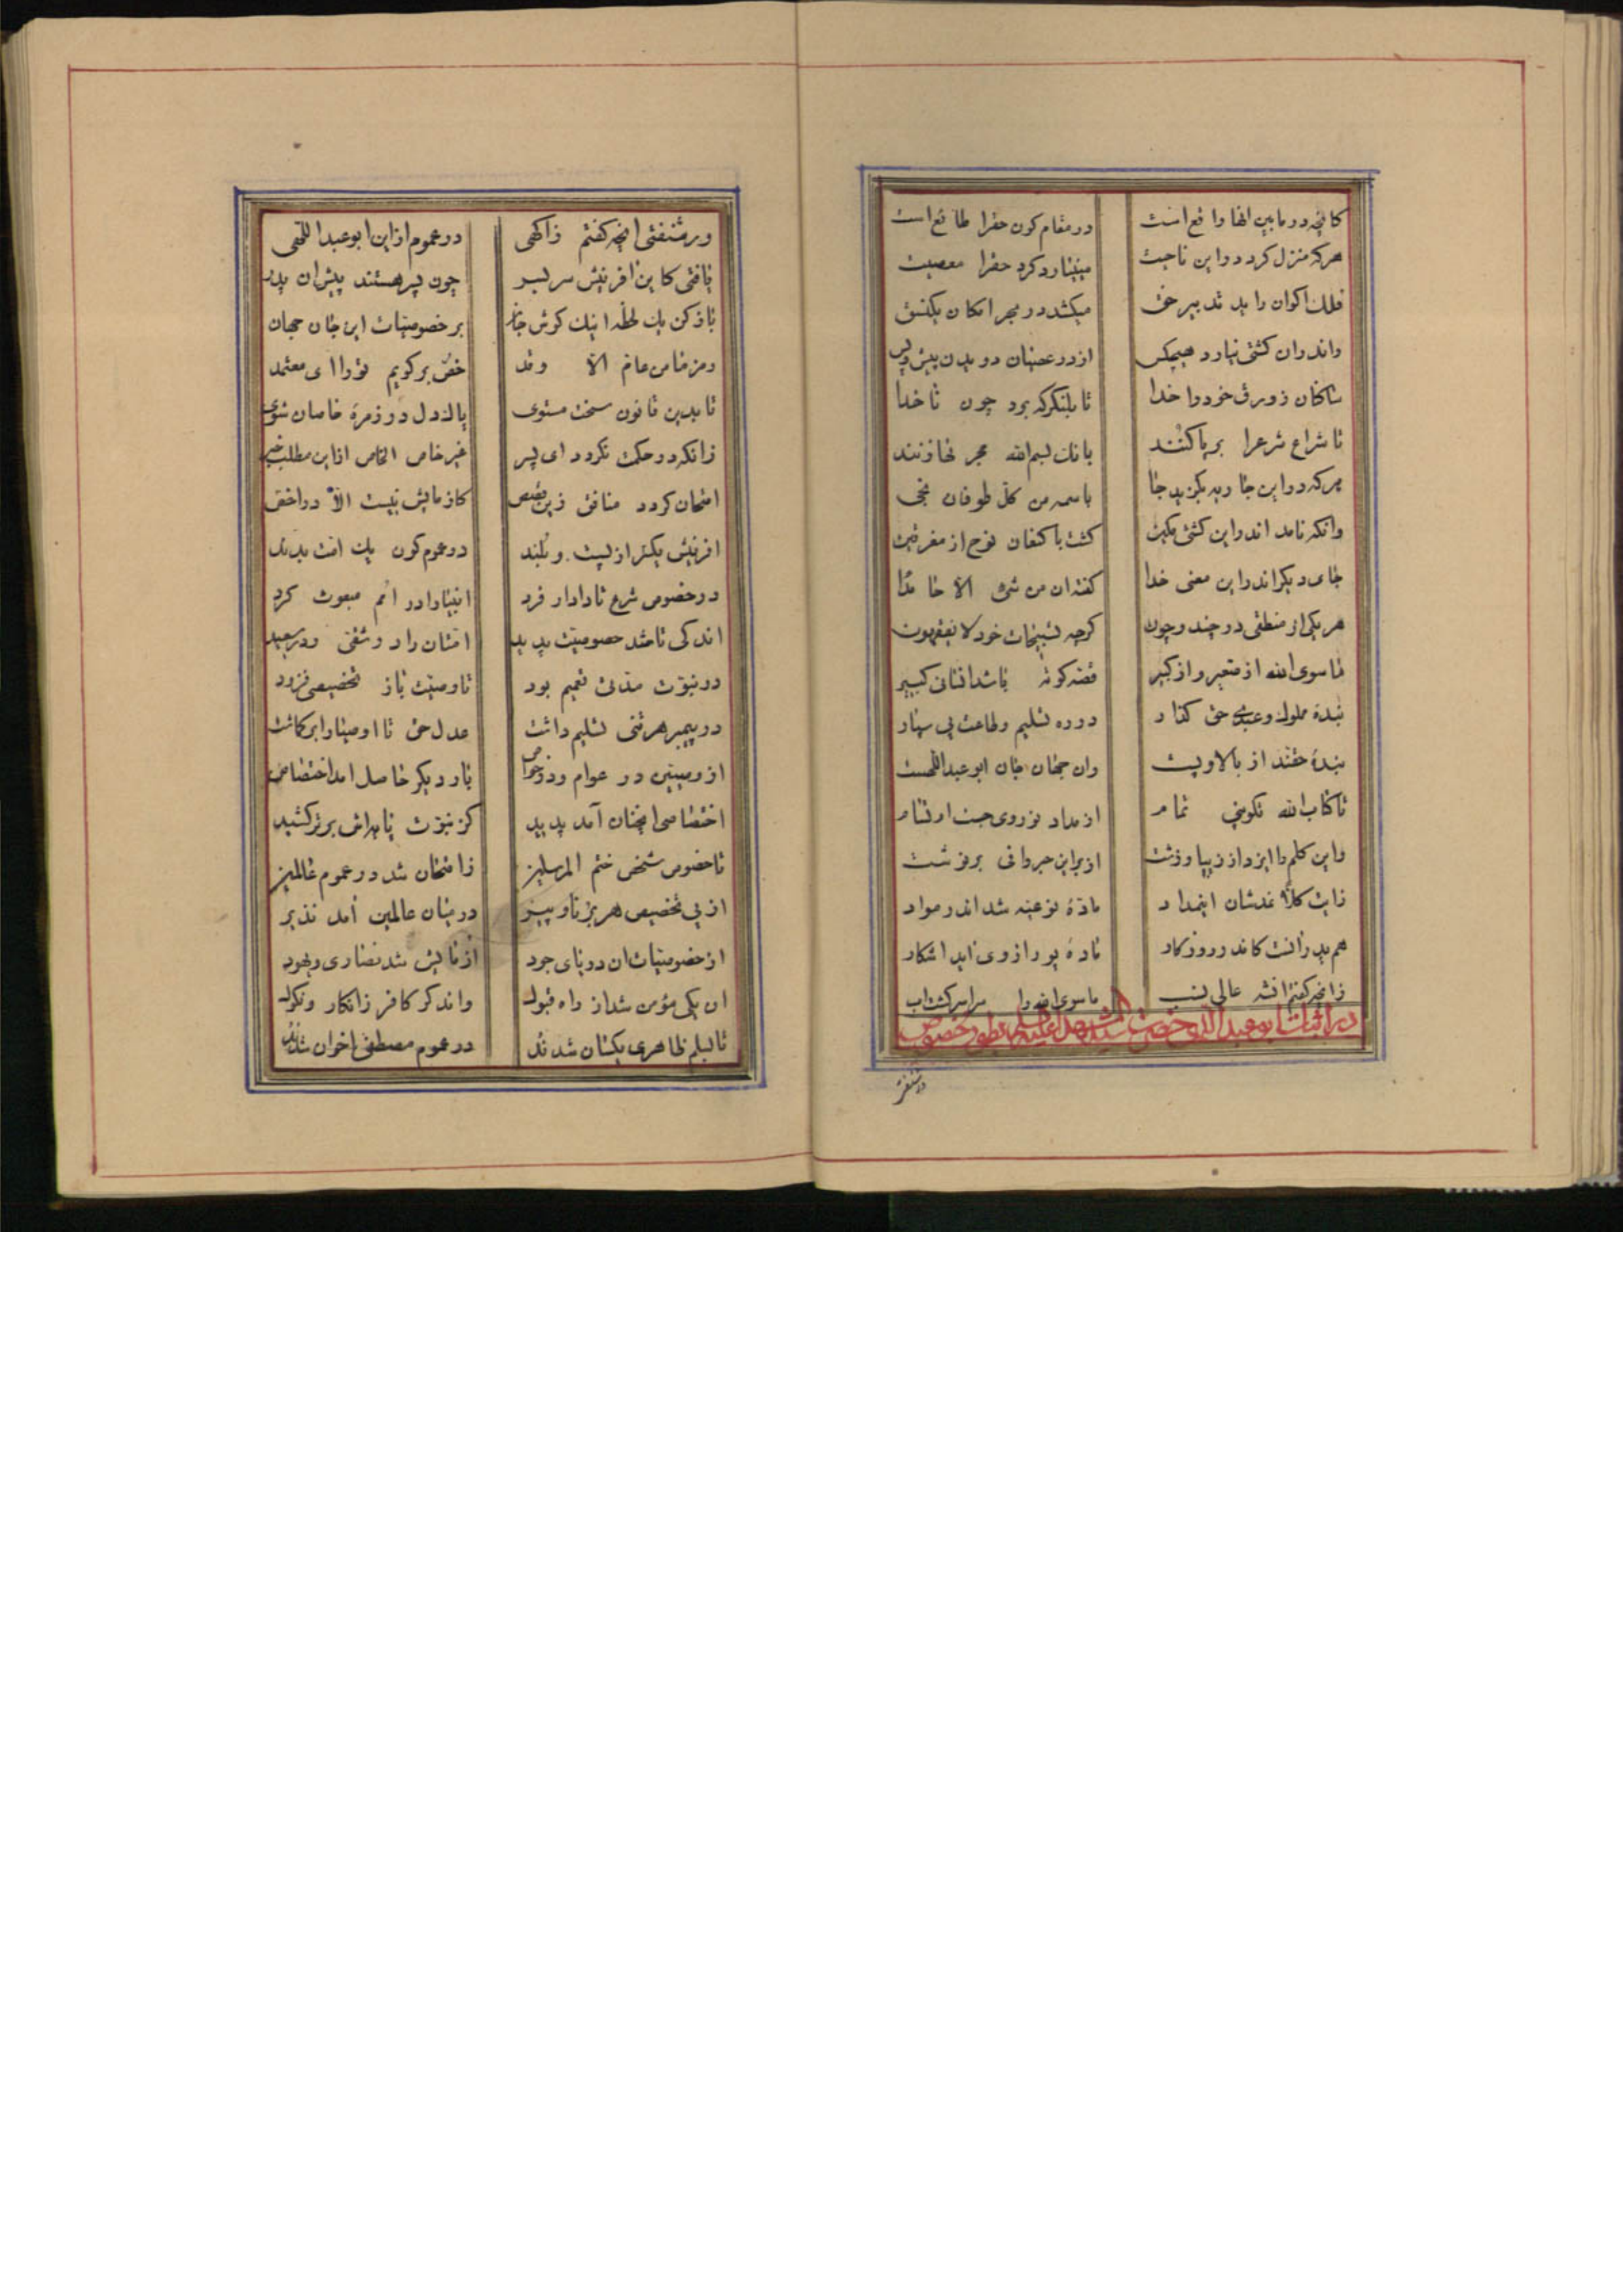 کانچه در مابین انها واقع است در مقام کون حقرا طائع است
هر که منزل کرد در این ناحیت مینیارد کرد حقرا معصیت
فلک اکوان را بد تدبیر حق میکشد در بحر امکان یکنسق
واندران کشتی نیارد هیچکس از در عصیان دویدن پیش و پس
ساکنان زورق خود را خدا تا بلنگرکه برد چون ناخدا
تا شراع شرعرا برپا کنند بانک بسم الله مجر نها زنند
هر که در این جا ویه بگزید جا باسمه من کل طوفان نجی
وانکه نامد اندر این کشتی مکین کشت با کنعان نوح از مغرقین
جای دیگر اندر این معنی خدا گفته ان من شیء الا
هر یکی از منطقی در چند و چون گرچه تسبیحات خود لا تفقهون
ماسوی الله از صغیر و از کبیر قصه کوته باشد افتانی کبیر
بنده مملوک و عبدی حق گذار در ره تسلیم و طاعت پی سپار
بنده حقند از بالا و پست وان جهان جان ابو عبد اللهست
تا کتاب الله تکوینی تمام از مداد نور وی جست ارتسام
واین کلم را ایزد از زیبا و زشت از برای خیر وانی بر نوشت
زایت کلا نمدشان اینمداد ماده نوعیه شد اندر مواد
هم پدر زانست کاندر روزگار ماده پور از وی اید اشکار
زانچه گفتم انشه عالی نسب ماسوی الله را سراسر گشت اب
در اثبات ابو عبد اللهی حضرت سید الشهدا علیه السلم بطور خصوص
ور شنفتی
ور شنفتی انچه گفتم زاگهی در عموم از این ابو عبد اللهی
یافتی کاین افرینش سر بسر چون پسر هستند پیش ان پدر
باز کن یک لحظه اینک گوش جان بر خصوصیات این جان جهان
ومن خاص عام الا وقد خص برگویم تو را ای معتمد
تا بدین قانون سخت مستوی پاکدل در زمره خاصان شوی
زانکه در حکمت نگردد ای پسر غیر خاص الخاص از این مطلب خبر
امتحان گردد منافق زین قصص کازمایش نیست الا در اخص
افرینش یکسر از پست و بلند در عموم کون یک امت بدند
در خصوص شرع تا دادار فرد انبیا را در امم مبعوث کرد
اندکی تا شد خصوصیت پدید امتشان راد و شقی ودر سعید
در نبوت مدتی تعمیم بود تا وصیت باز تخصیصی فزود
در پیمبر هر تنی تسلیم داشت عدل حق تا اوصیا را بر گماشت
از وصیین در عوام و در خواص بار دیگر حاصل امد اختصاص
اختصاصی انچنان آمد پدید کز نبوت پایه اش برتر کشید
تا خصوص شخص ختم المرسلین زامتحان شد در عموم عالمین
از پی تخصیص هر بر نا و پیر در میان عالمین آمد نذیر
از خصوصیات ان دریای جود ازمایش شد نصاری و یهود
ان یکی مؤمن شد از راه قبول واندگر کافر ز انکار و نکول
تا بسلم ظاهری یکسان شدند در عموم مصطفی اخوان شدند